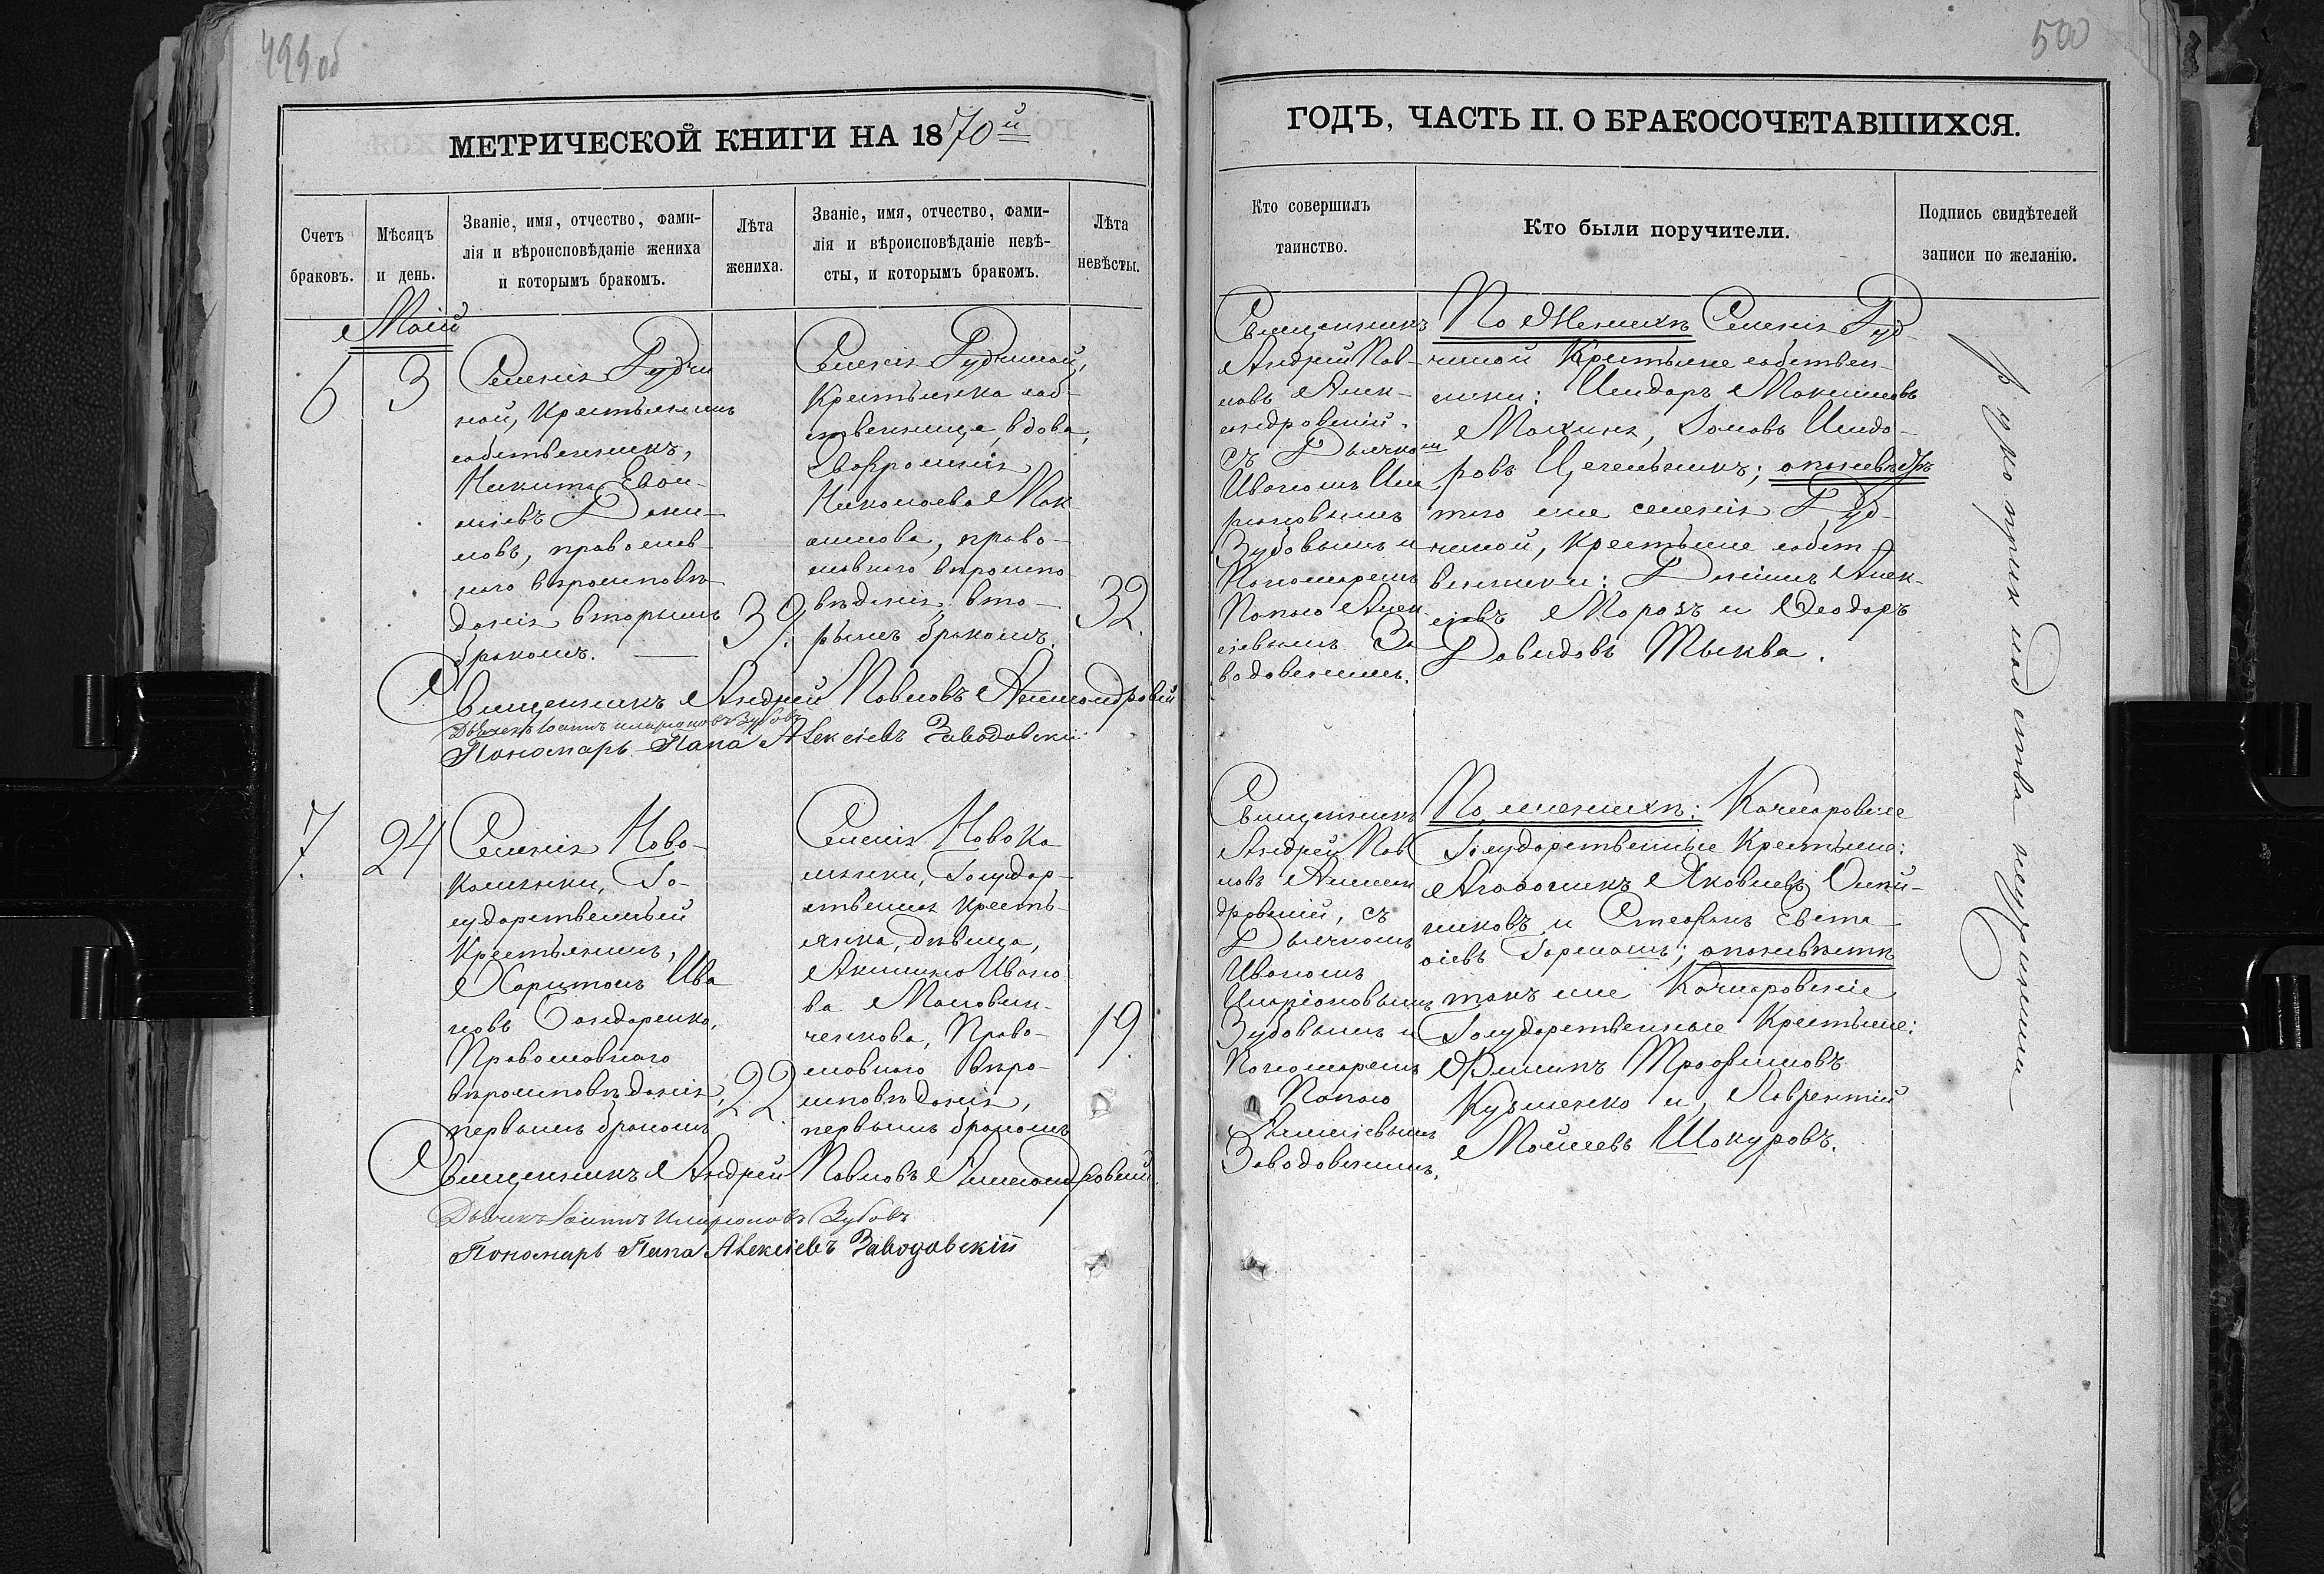 499 об
МЕТРИЧЕСКОЙ КНИГИ НА 1870й
Счетъ
браковъ.
Мѣсяцъ
и день.
Званіе, имя, отчество, фами-
лія и вѣроисповѣданіе жениха
и которымъ бракомъ.
Лѣта
жениха.
Званіе, имя, отчество, фами-
лія и вѣроисповѣданіе невѣ-
сты, и которымъ бракомъ.
Лѣта
невѣсты.
Маій
6
3
Селенія Рудчи
ной, Крестьянинъ
собственникъ,
Никита Евѳи-
міевъ Дани-
ловъ, православ-
наго вѣроисповѣ-
данія вторымъ
бракомъ.
39.
Селенія Рудчиной,
Крестьянка соб-
ственница, вдова,
Евфросинія
Николаева Мак
симова, право-
славнаго вѣроиспо-
вѣданія, вто-
рымъ бракомъ.
32.
Священникъ Андрей Павловъ Александровскій
Дьячекъ Іоаннъ Иларіоновъ Зубовъ
Пономарь Папа Алексіевъ Заводовскій
7.
24
Селенія Ново-
Каменки, Го-
сударственный
Крестьянинъ,
Харитонъ Ива
новъ Бондаренко,
Православнаго
вѣроисповѣданія,
первымъ бракомъ
22.
Селенія Новока
менки, Государ-
ственная Кресть-
янка, дѣвица,
Акилина Ивано
ва
Право-
славнаго вѣро-
исповѣданія,
первымъ бракомъ
19.
Священникъ Андрей Павловъ Александровскій.
Дьячекъ Іоаннъ Иларіоновъ Зубовъ
Пономарь Папа Алексіевъ Заводовскій
500
ГОДЪ, ЧАСТЬ II. О БРАКОСОЧЕТАВШИХСЯ.
Кто совершилъ
таинство.
Кто были поручители.
Подпись свидѣтелей
записи по желанію.
Священникъ
Андрей Пав-
ловъ Алек-
сандровскій,
съ Дьячкомъ
Иваномъ Ила
ріоновымъ
Зубовымъ и
Пономаремъ
Папою Алек
сіевымъ За
водовскимъ.
По Женихѣ Селенія Руд-
чиной Крестьяне собствен-
ники: Исидоръ Максимовъ
Исидо-
ровъ; по невѣстѣ
того же селенія Руд-
чиной, Крестьяне собст-
венники: Алек-
сіевъ Морозъ и Ѳеодоръ
Давидовъ Тыква.
Священникъ
Андрей Пав
ловъ Алексан
дровскій, съ
Дьячкомъ
Иваномъ
Иларіоновымъ
Зубовымъ и
Пономаремъ
Папою
Алексіевымъ
Заводовскимъ.
По женихѣ: Качкаровскіе
Государственные Крестьяне:
Яковлевъ
и Стефанъ Евста
ѳіевъ; по невѣстѣ
такъ же Качкаровскіе
Государственные Крестьяне:
Филипъ Трофимовъ
Кузменко и, Лаврентій
Моисеевъ Шокуровъ.